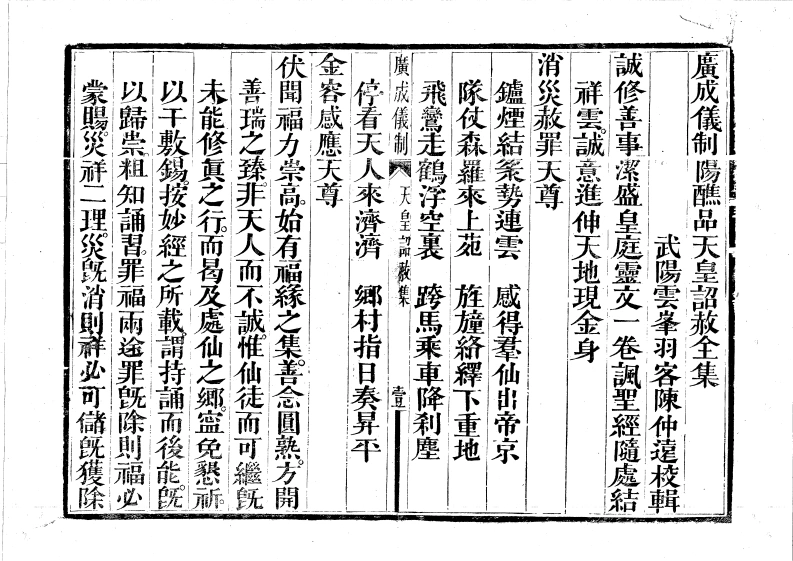 廣成儀制陽醮品天皇詔赦全集
武陽雲峯羽客陳仲遠校輯
誠修善事潔盛皇庭靈文一卷諷聖經隨處結
祥雲。誠意進伸天地現金身
消災赦罪天尊
鑪煙結篆勢連雲　感得羣仙出帝京
隊仗森羅來上苑　旌幢絡繹下重地
飛鸞走鶴浮空裏　跨馬乘車降刹塵
廣成儀制　天皇詔赦集　壹
停看天人來濟濟　鄉村指日奏昇平
金容感應天尊
伏聞福力崇高。始有福緣之集。善念圓熟。方開
善瑞之臻。非天人而不誠。惟仙徒而可繼。旣
未能修眞之行。而曷及處仙之鄉。寍免懇祈。
以干敷錫。按妙經之所載。謂持誦而後能。旣
以歸崇。粗知誦習。罪福兩途。罪旣除則福必
蒙賜。災祥二理。災旣消則祥必可儲。旣獲除